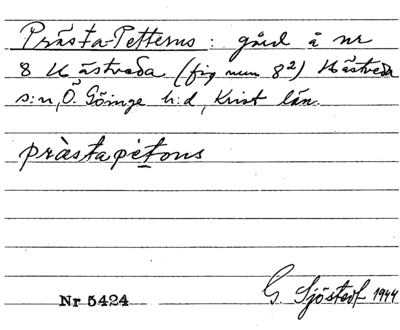 Prästa-Petterns: gård å nr
8 Hästveda (fig num 8²) Hästveda
s:n, Ö. Göinge h:d, Krist län.
pràstapètǫns
Nr 5424 G. Sjöstedt 1944